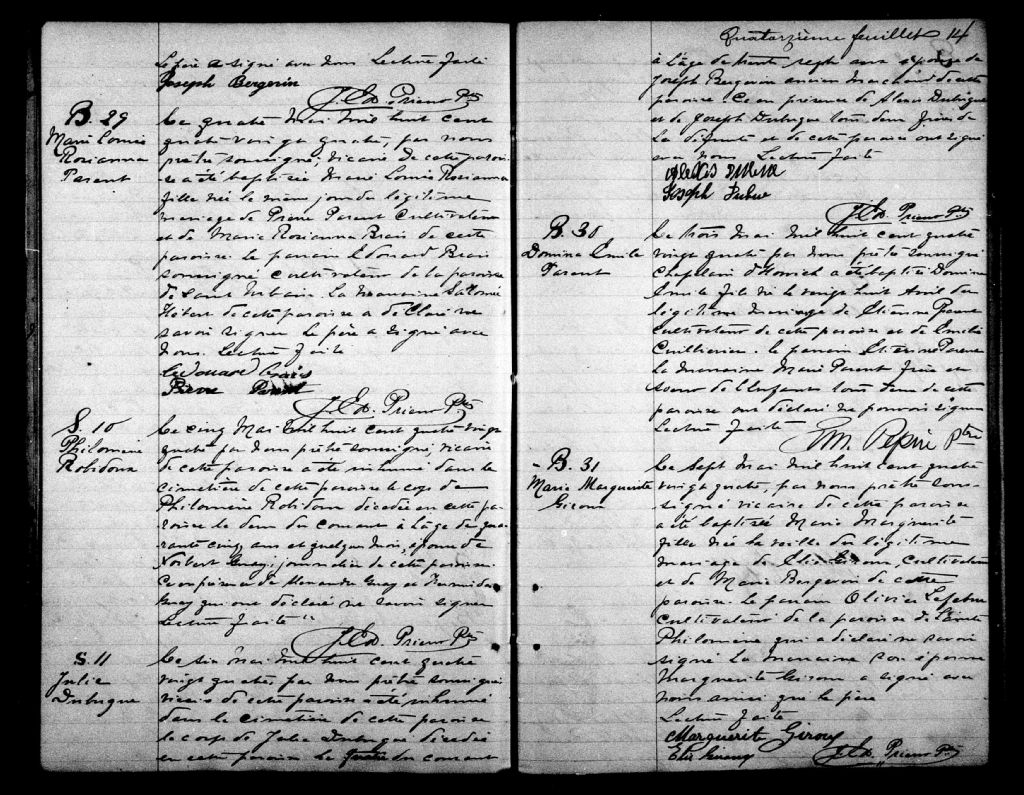 Le père a signé avec nous Lecture faite
Joseph Bergevin
J. Ed. Prieur Ptre
B. 29
Marie Louise
Rosianna
Parent
Le quatre Mai mil huit cent
quatre vingt quatre, par nous
prêtre soussigné, vicaire de cette parois-
se a été baptisée Marie Louise Rosianna
fille née le même jour du légitime
mariage de Pierre Parent Cultivateur
et de Marie Rosianna Brais de cette
paroisse le parrain Edouard Brais
soussigné cultivateur de la paroisse
de Saint Urbain. La marraine Salomé
Hébert de cette paroisse a déclaré ne
savoir signer le père a signé avec
nous. Lecture faite
Edouard Brais
Pierre Parent
J. Ed. Prieur Ptre
S. 10
Philomène
Robidoux
Le cinq Mai mil huit cent quatre vingt
quatre par nous prêtre soussigné, vicaire
de cette paroisse a été inhumé dans le
cimetière de cette paroisse le corps de
Philomène Robidoux décédée en cette pa-
roisse le deux du courant à l'âge de qua-
rante cinq ans et quelques mois, épouse de
Norbert Guay, journalier de cette paroisse.
En présence de Alexandre Guay et
Guay qui ont déclaré ne savoir signer
Lecture faite
J. Ed. Prieur Ptre
S. 11
Julie
Dubuque
Le six Mai mil huit cent quatre
vingt quatre par nous prêtre soussigné
vicaire de cette paroisse a été inhumé
dans le cimetière de cette paroisse
le corps de Julie Dubuque décédée
en cette paroisse le quatre du courant
Quatorzième feuillet 14
à l'âge de trente sept ans épouse de
Joseph Bergevin ancien marchand de cette
paroisse. En présence de Alexis Dubuque
et de Joseph Dubuque tous deux frères de
la défunte et de cette paroisse ont signé
avec nous Lecture faite
Alexis
Joseph
J. Ed. Prieur Ptre
B. 30
Domina Emile
Parent
Le trois Mai mil huit cent quatre
vingt quatre par nous prêtre soussigné
Chapelain d'Howick a été baptisé Domina
Emile fils né le vingt huit Avril du
légitime mariage de Etienne Parent
Cultivateur de cette paroisse et de Emélie
Cuillierier. le parrain Etienne Parent
la marraine Marie Parent frère et
soeur de l'enfant tous deux de cette
paroisse ont déclaré ne pouvoir signer
Lecture faite
Em Pepin Ptre
B. 31
Marie Marguerite
Giroux
Le sept Mai mil huit cent quatre
vingt quatre, par nous prêtre sous-
signé vicaire de cette paroisse
a été baptisée Marie Marguerite
fille née la veille du légitime
mariage de Elie Giroux, cultivateur
et de Marie Bergevin de cette
paroisse. Le parrain Olivier Lefebvre
cultivateur de la paroisse de Sainte
Philomène, qui a déclaré ne savoir
signé La marraine son épouse
Marguerite Giroux a signé avec
nous ainsi que le père
Lecture faite
Marguerite Giroux
Elie
J. Ed. Prieur Ptre